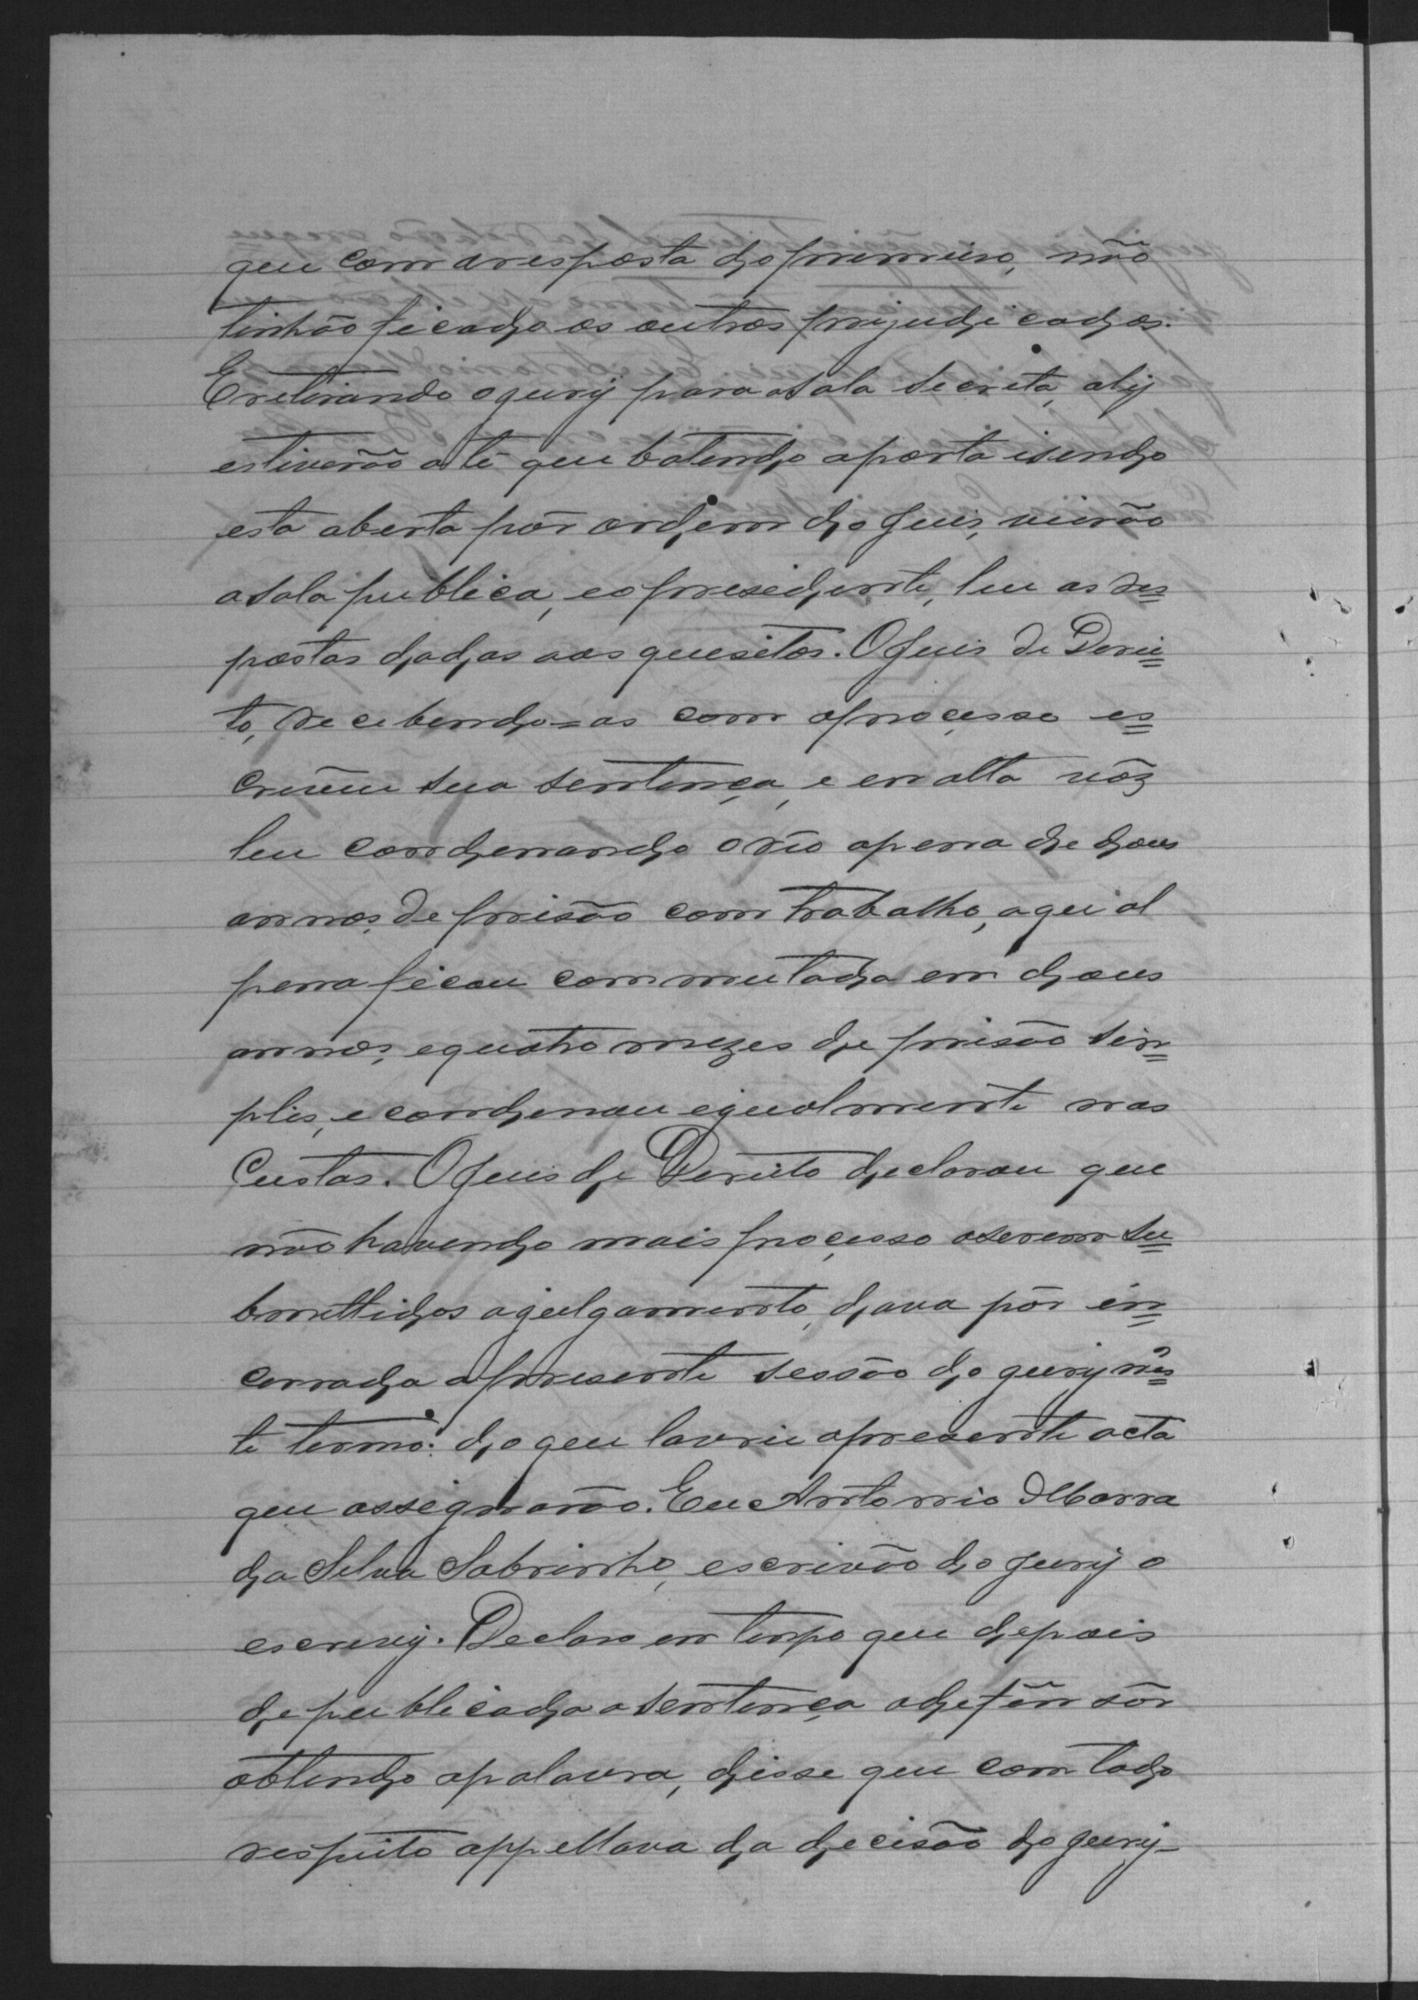 que com a resposta do primeiro, não
tinhão ficado os outros prejudicados.
E retirando o jury para a sala secreta, aly
estiverão até que batendo a porta e sendo
esta aberta pôr ordem do Juis, vierão
a sala publica, e o presidente, leu as res=
postas dadas aos quesitos. O Juis de Derei=
to, recebendo=as com o processo es=
creveu sua sentença, e en alta vôz
leu condennando o réo a pena de dous
annos de prisão com trabalho, a qual
pena ficou commutada em dous
annos, e quatro mezes de prisão sim=
plis, e condenou egualmente nas
Custas. O Juis de Dereito declarou que
não havendo mais processo a serem su=
bmettidos a julgamento, dava pôr en=
cerrada a presente sessão do jury nês=
te termo: do que lavrei a presente acta
que assegnarão. Eu Antonio
da Silva Sobrinho, escrivão do Jury o
escrevy. Declaro em tempo que depois
de publicada a sentença o defênsôr
obtendo a palavra, disse que com todo
respeito appellava da decisão do jury